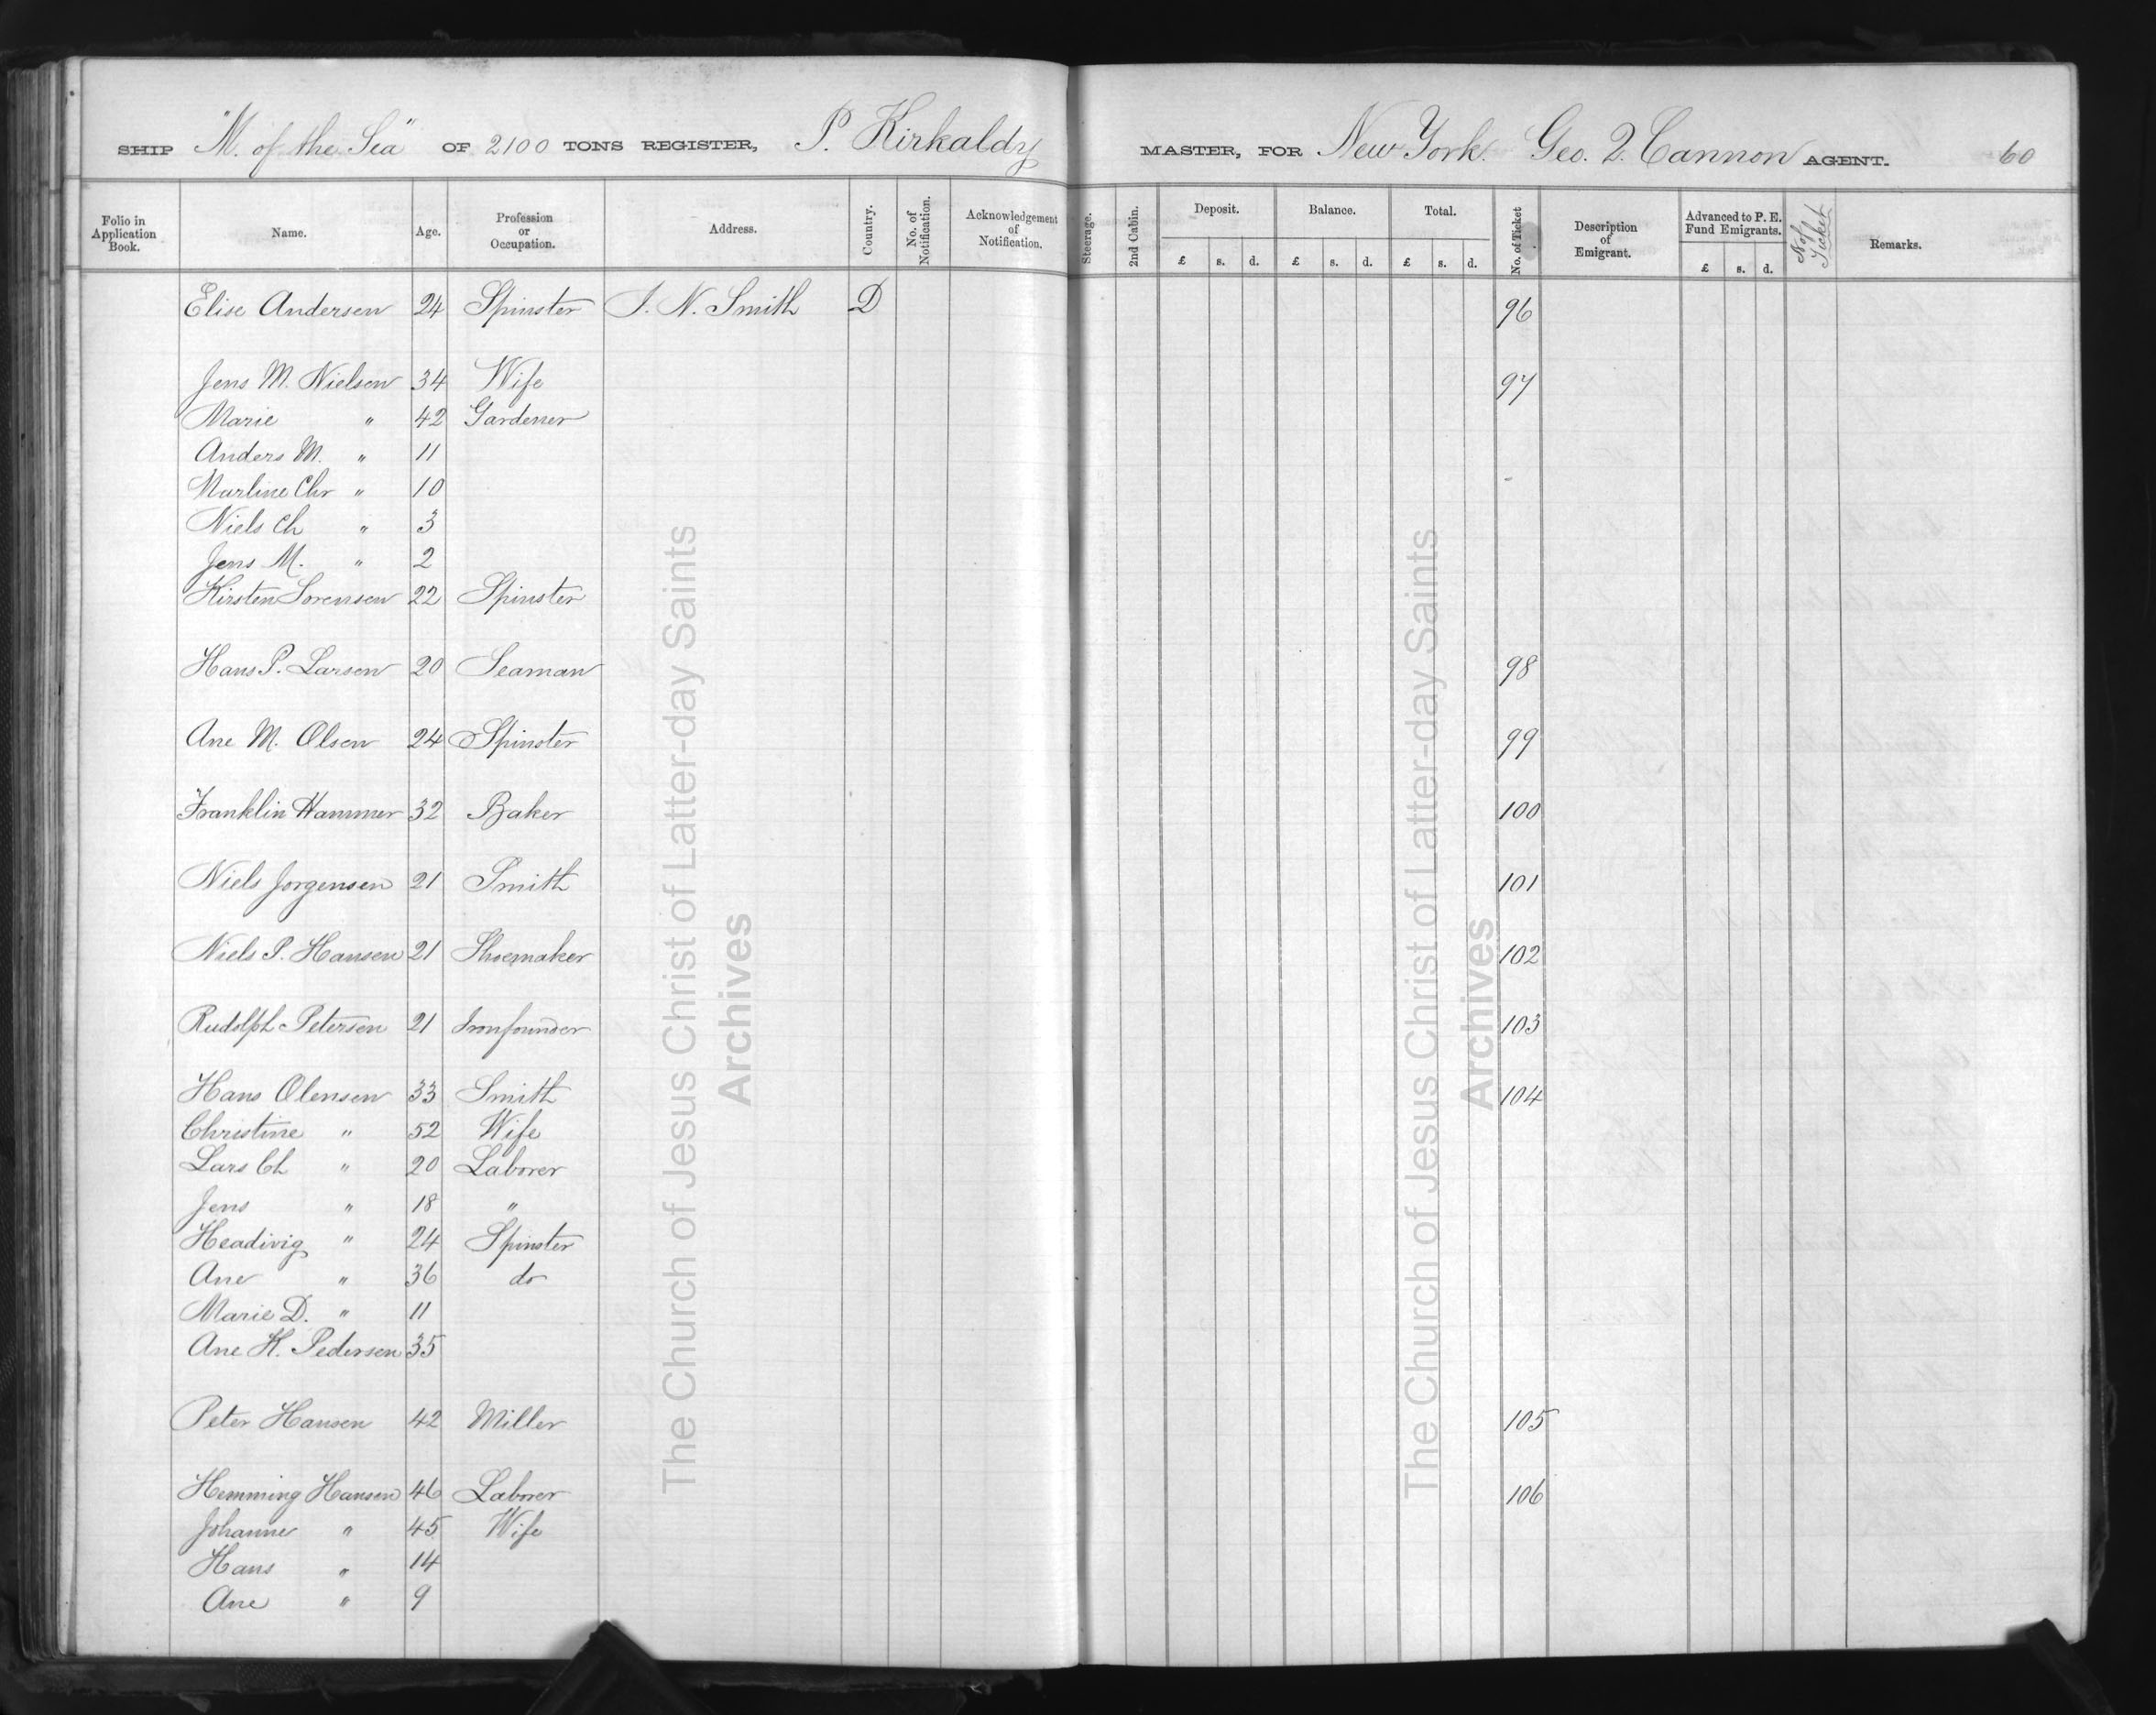 SHIP "M. of the Sea" OF 2100 TONS REGISTER, P. Kirkaldy MASTER, FOR New York. Geo. Q. Cannon AGENT. 60
Folio in Application Book. Name. Age. Profession or Occupation. Address. Country. No. of Notification. Acknowledgement of Notification. Steerage. 2nd Cabin. Deposit. £ s. d. Balance. £ s. d. Total. £ s. d. No. of Ticket Description of Emigrant. Advanced to P. E. Fund Emigrants. £ s. d. No of Ticket Remarks.
Elise Andersen 24 Spinster J. N. Smith D 96
Jens M. Nielsen 34 Wife 97
Marie " 42 Gardener
Anders M. " 11
Marline Chr " 10
Niels Ch " 3
Jens M. " 2
Kirsten Sorensen 22 Spinster
Hans P. Larsen 20 Seaman 98
Ane M. Olsen 24 Spinster 99
Franklin Hammer 32 Baker 100
Niels Jorgensen 21 Smith 101
Niels P. Hansen 21 Shoemaker 102
Rudolph Petersen 21 Ironfounder 103
Hans Olensen 33 Smith 104
Christine " 52 Wife
Lars Ch " 20 Laborer
Jens " 18 "
Headivig " 24 Spinster
Ane " 36 do
Marie D. " 11
Ane K. Pedersen 35
Peter Hansen 42 Miller 105
Hemming Hansen 46 Laborer 106
Johanne " 45 Wife
Hans " 14
Ane " 9
The Church of Jesus Christ of Latter-day Saints
Archives
The Church of Jesus Christ of Latter-day Saints
Archives